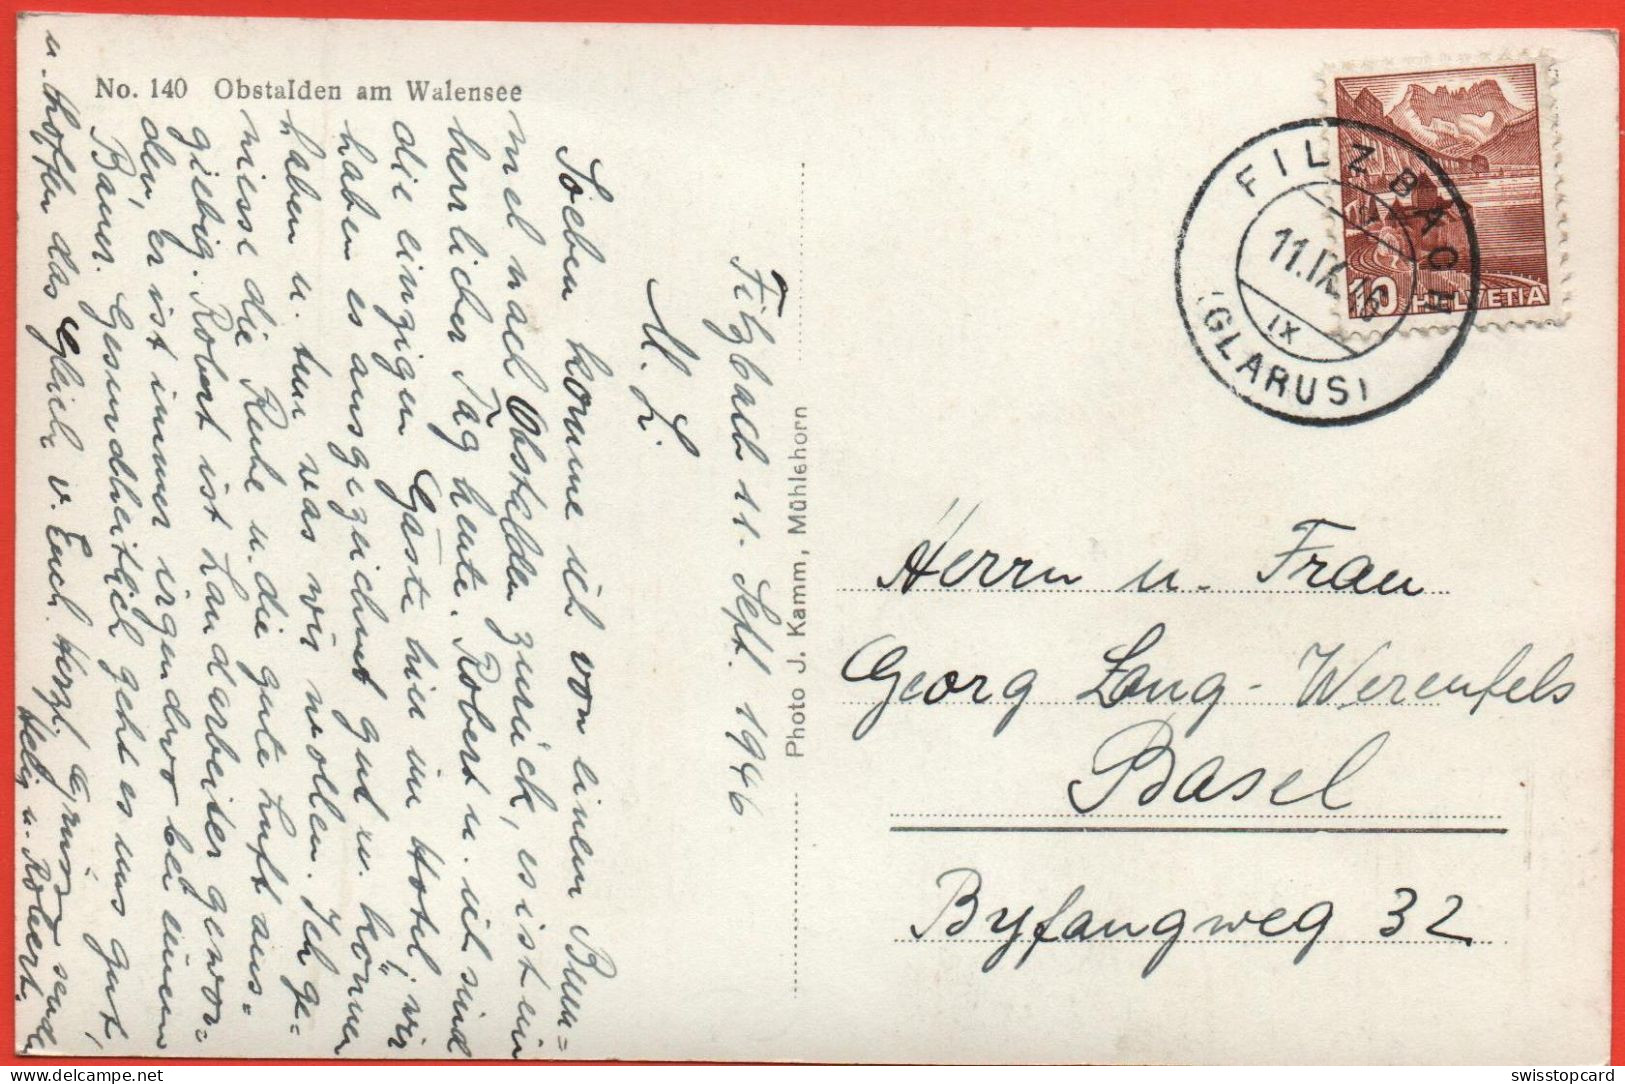 No. 140 Obstalden am Walensee
Filzbach 11. Sept. 1946.
M. L.
Soeben komme ich von einem Bum=
mel nach Obstalden zurück, es ist ein
herrlicher Tag heute. Robert u. ich sind
die einzigen Gäste hier im Hotel, wir
haben es ausgezeichnet gut u. können
haben u. tun was wir wollen. Ich ge=
niesse die Ruhe u. die gute Luft aus=
giebig. Robert ist Landarbeiter gewor=
den, er ist immer irgendwo bei einem
Bauer. Gesundheitlich geht es uns gut,
u. hoffen das Gleiche v. Euch. Herzl. Grüsse senden
Hely u. Robert.
Photo J. Kamm, Mühlehorn
FILZBACH
11.IX.46
IX
(GLARUS)
10 HELVETIA
Herrn u. Frau
Georg Lang-Werenfels
Basel
Byfangweg 32
swisstopcard